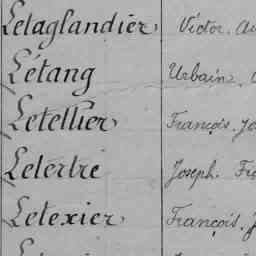 Letaglandier Victor. Au
L'étang Urbain.
Letellier François. Jo
Letertre Joseph. Fra
Letexier François. J